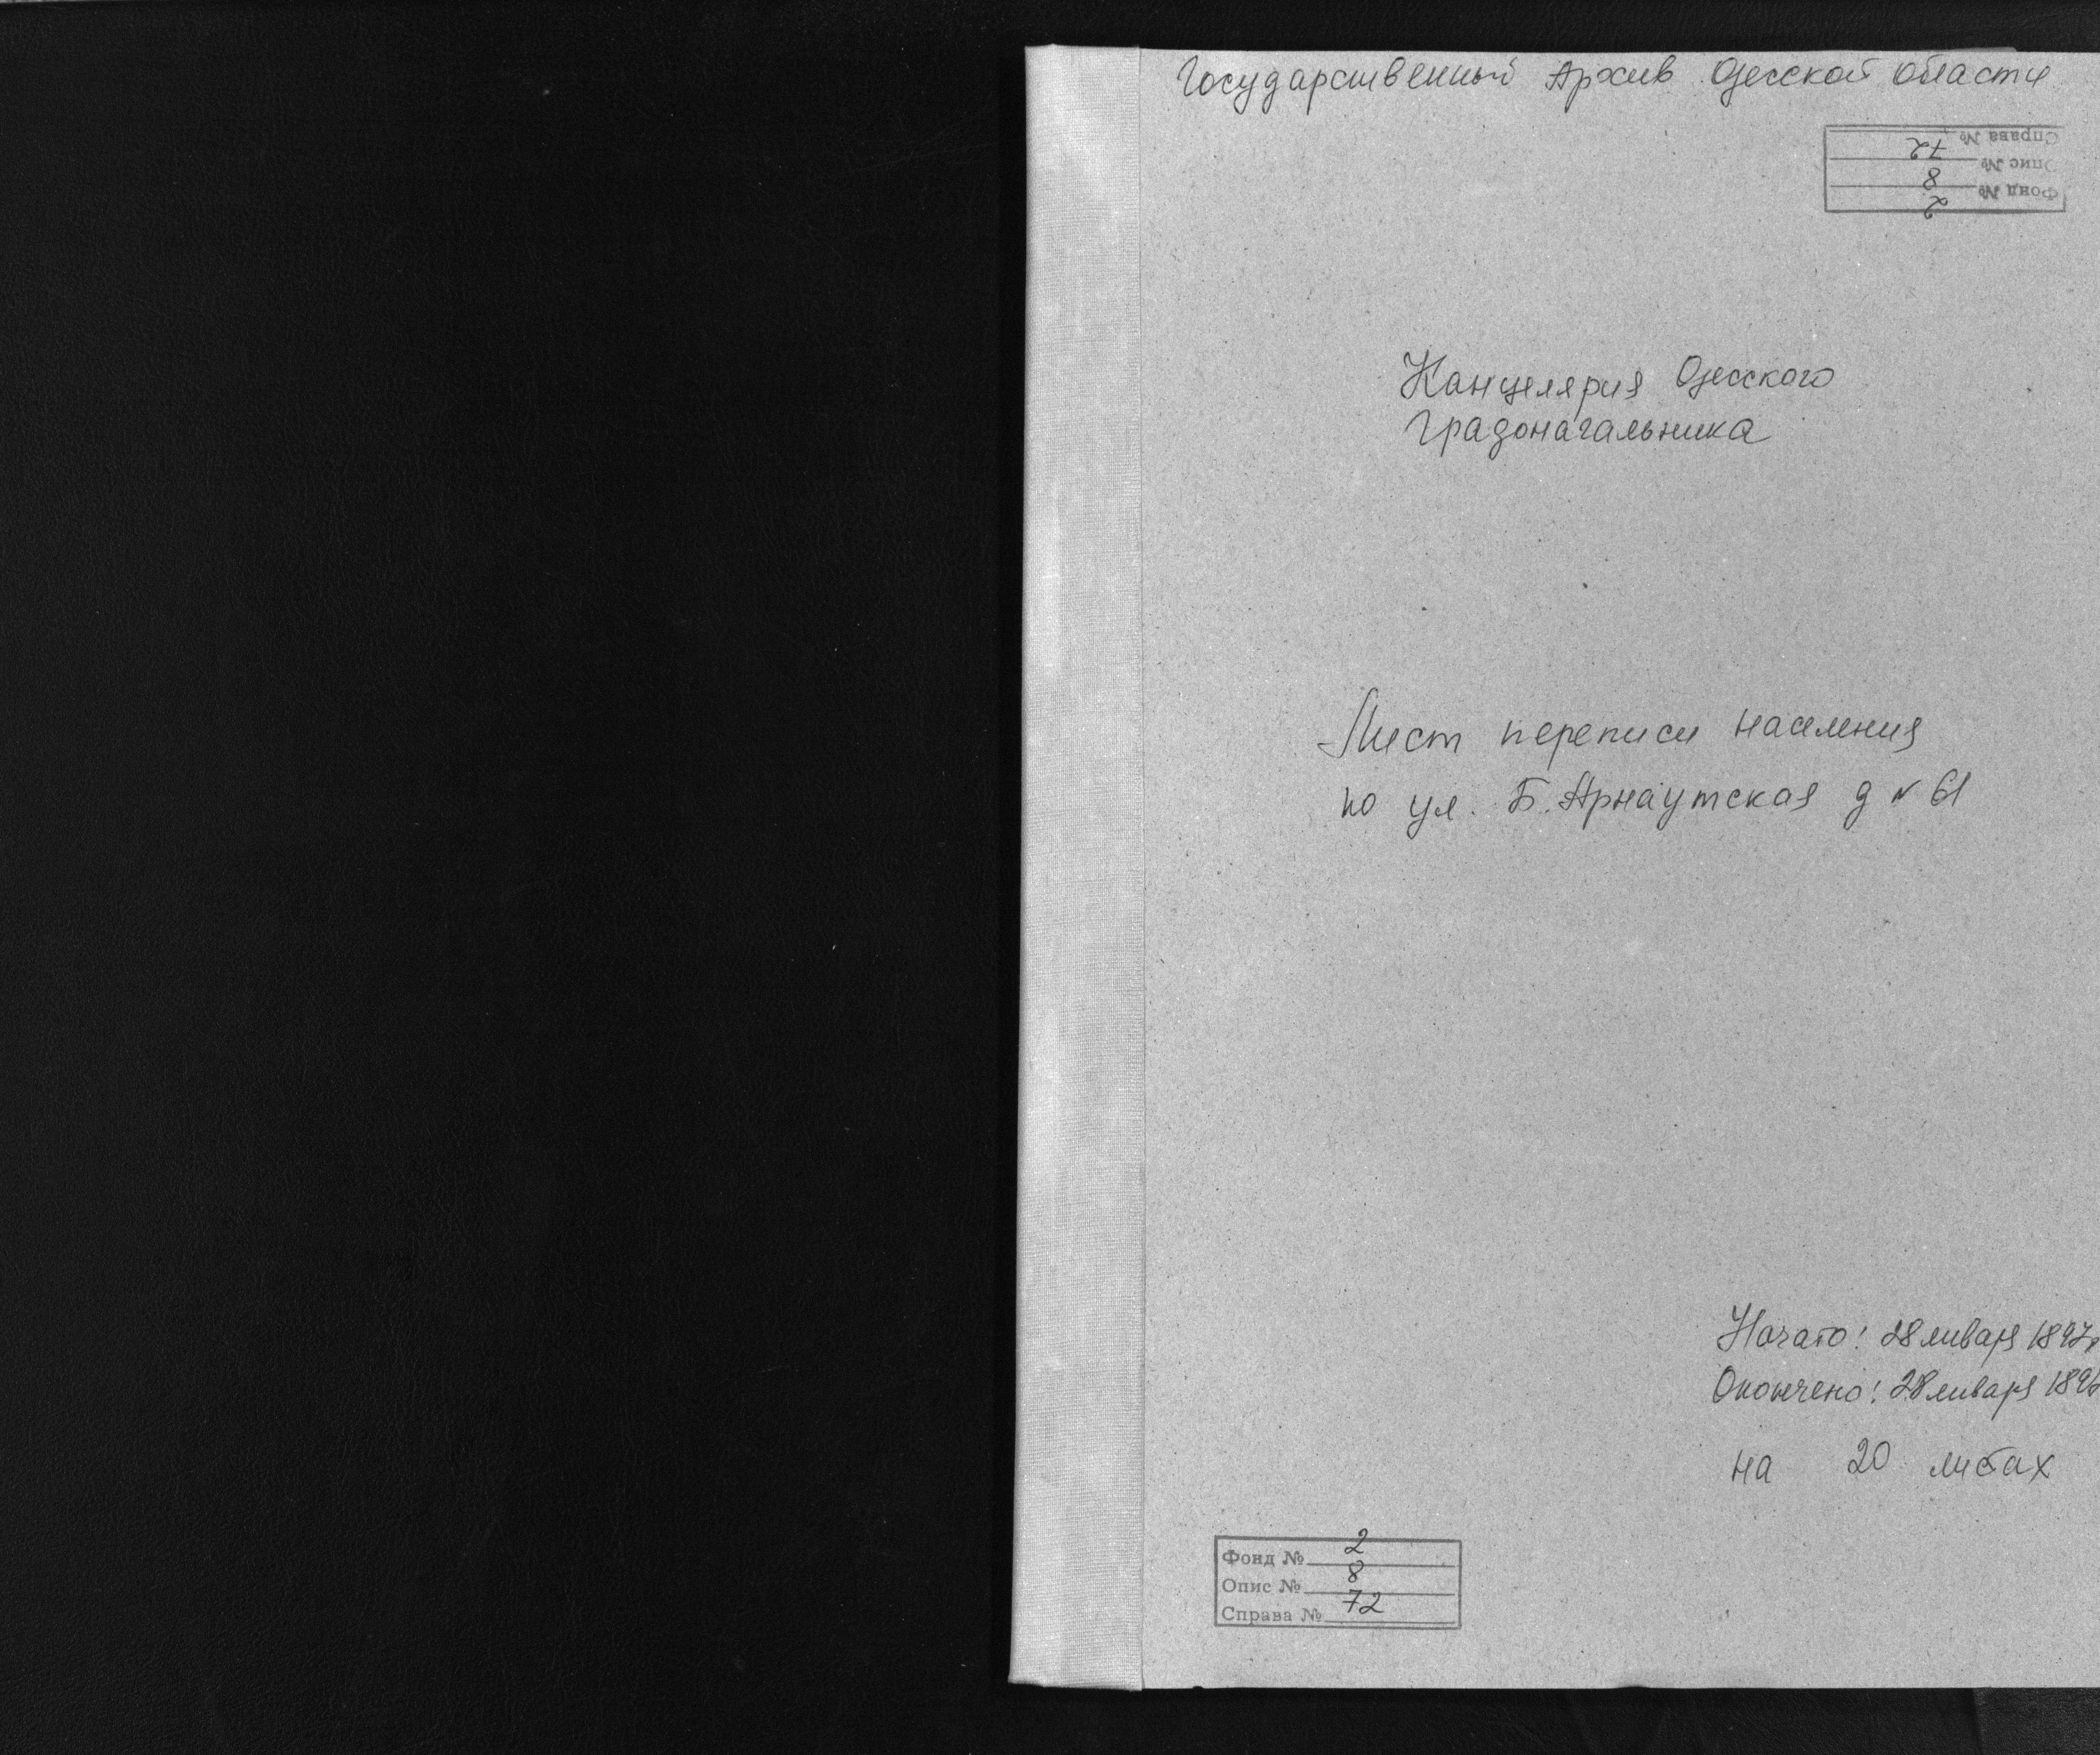 Государственный Архив Одесской области
Справа № 72
Опис № 8
Фонд № 2
Канцелярия Одесского
Градоначальника
Лист переписи населения
по ул. Б. Арнаутская д № 61
Начато: 28 января 1897г
Окончено: 28 января 189
на 20 листах
Фонд № 2
Опис № 8
Справа № 72